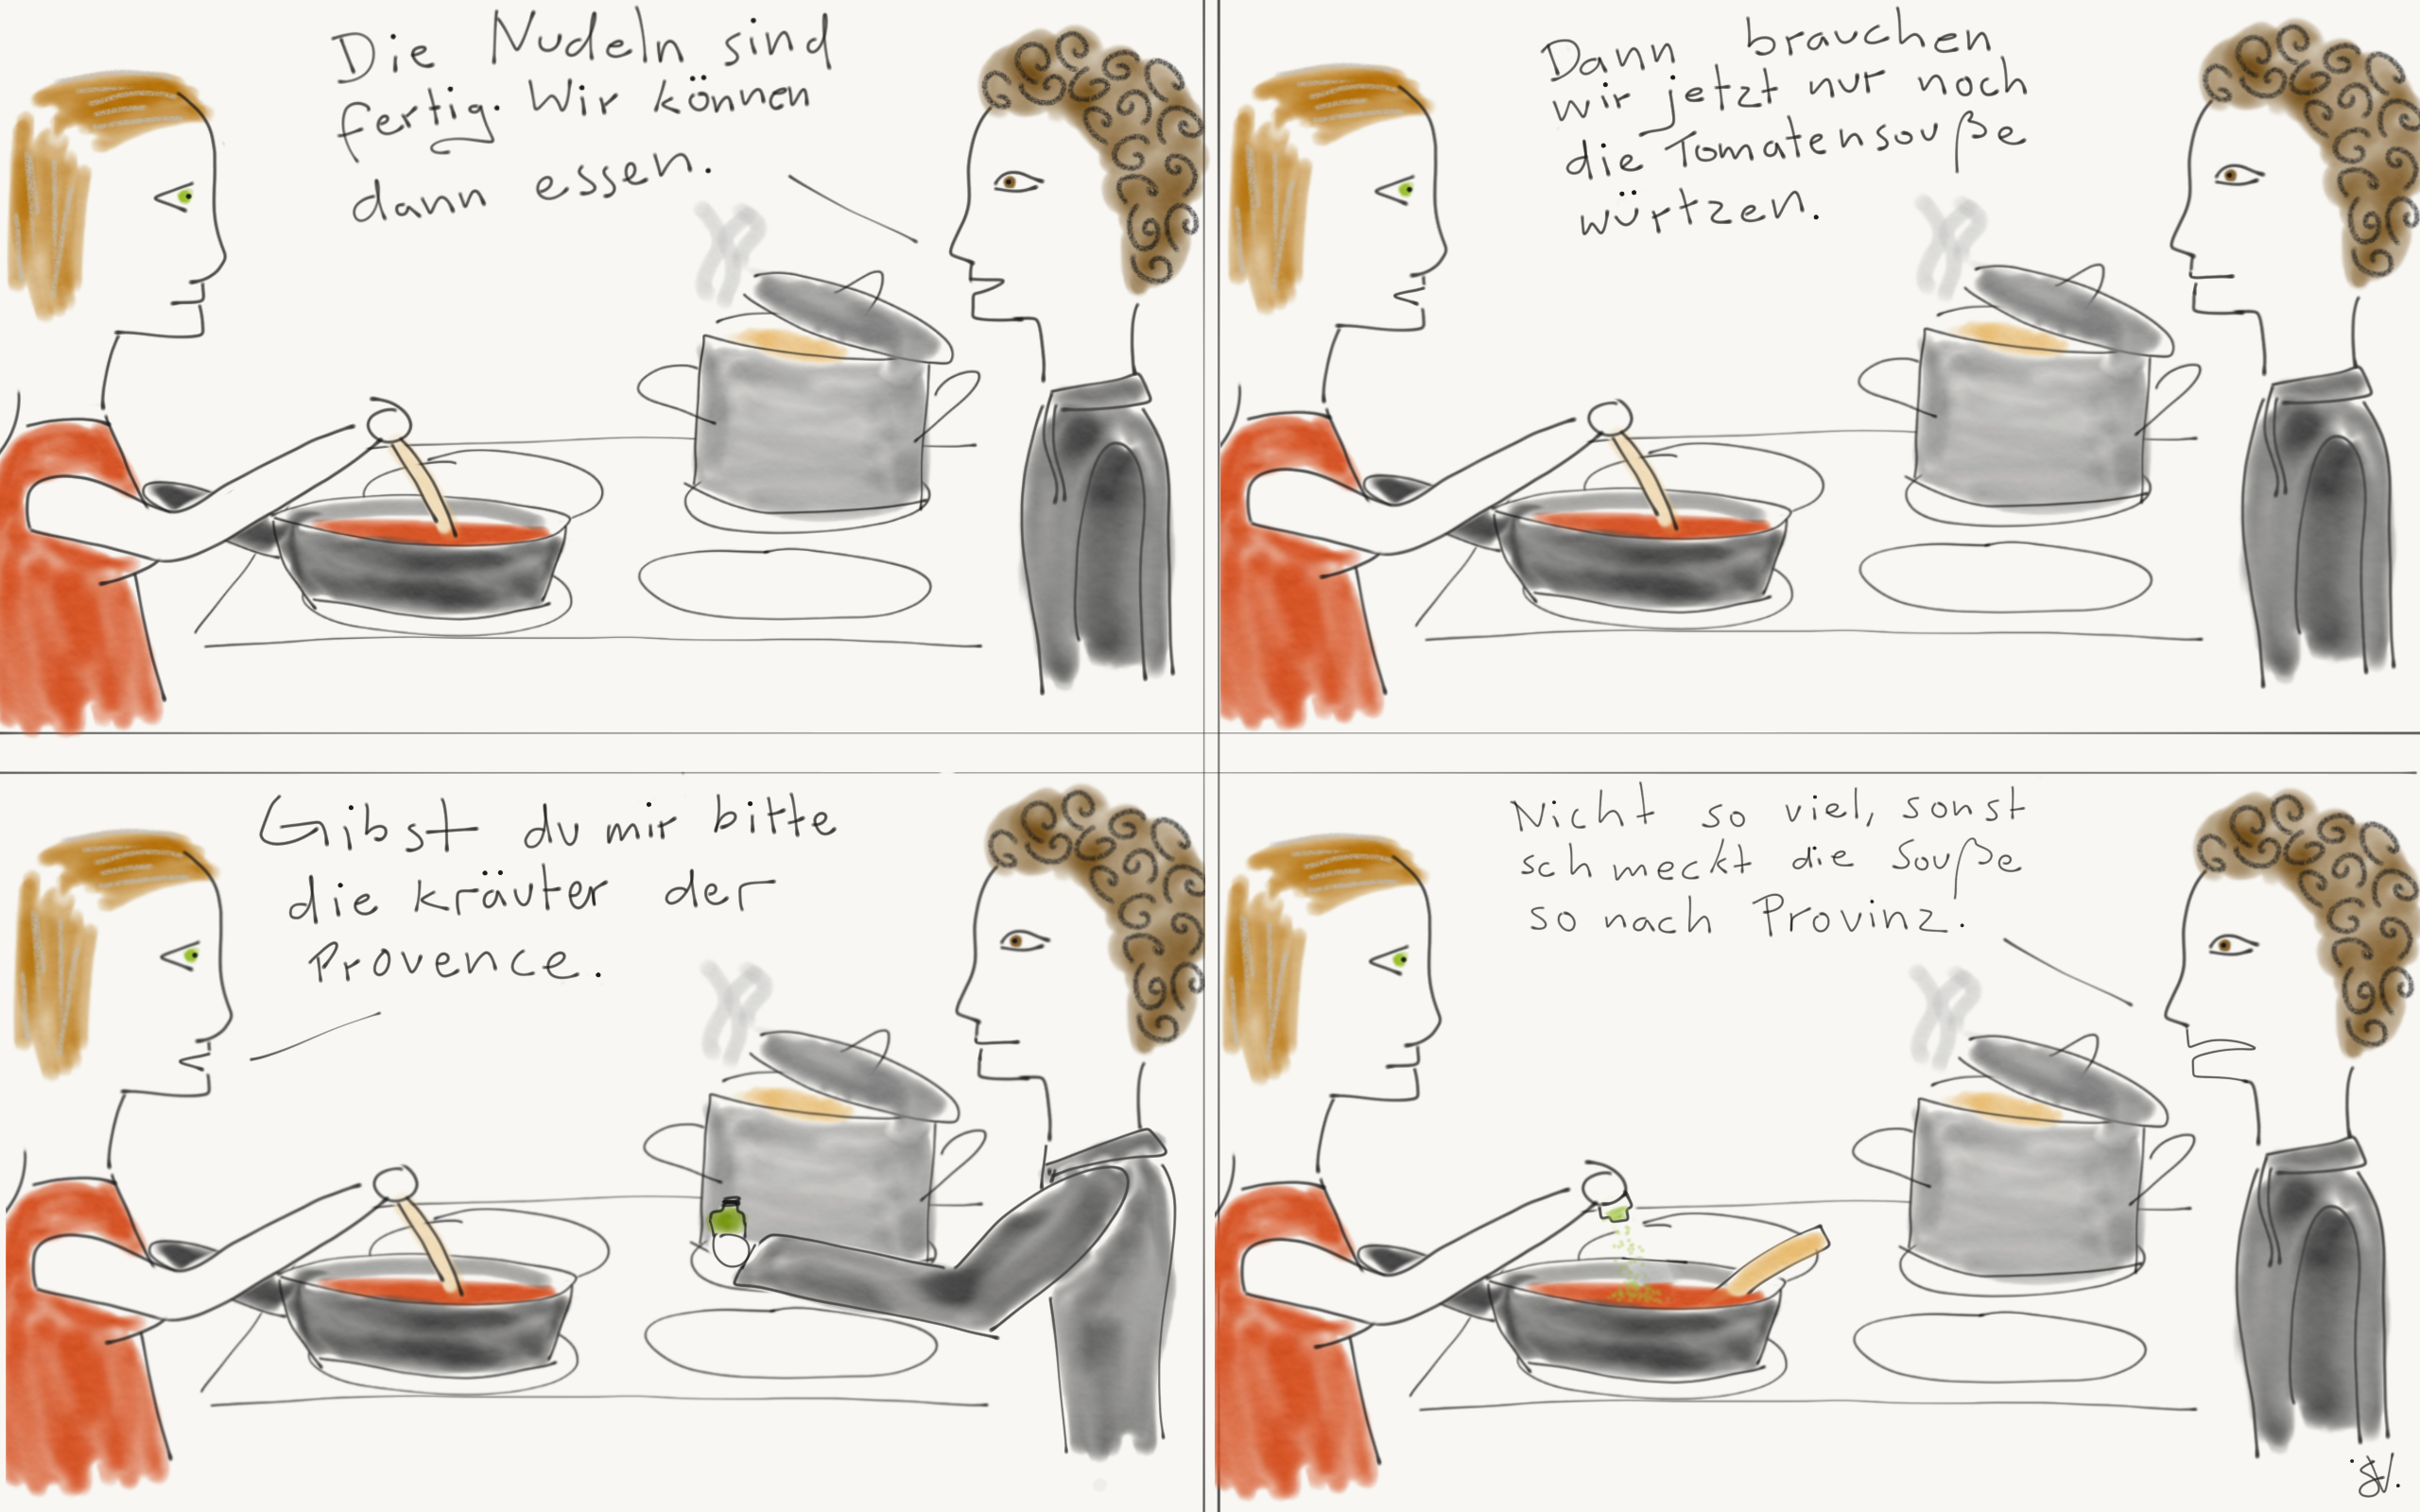 Die Nudeln sind
fertig. Wir können
dann essen.
Dann brauchen
wir jetzt nur noch
die Tomatensouße
würtzen.
Gibst du mir bitte
die kräuter der
Provence.
Nicht so viel, sonst
schmeckt die Souße
so nach Provinz.